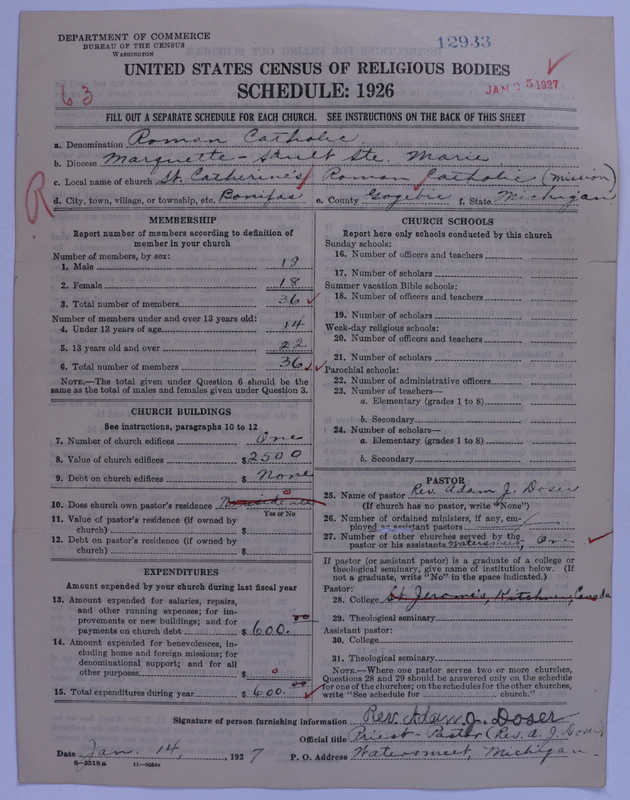 DEPARTMENT OF COMMERCE
BUREAU OF THE CENSUS
WASHINGTON
12933
UNITED STATES CENSUS OF RELIGIOUS BODIES
SCHEDULE: 1926
63
JAN 25 1927
FILL OUT A SEPARATE SCHEDULE FOR EACH CHURCH. SEE INSTRUCTIONS ON THE BACK OF THIS SHEET
a. Denomination Roman Catholic
b. Diocese Marquette - Sault Ste. Marie
c. Local name of church St. Catherine's Roman Catholic (Mission)
R
d. City, town, village, or township, etc. Bonifas e. County Gogebic f. State Michigan
MEMBERSHIP
Report number of members according to definition of
member in your church
Number of members, by sex:
1. Male 18
2. Female 18
3. Total number of members 36
Number of members under and over 13 years old:
4. Under 13 years of age 14
5. 13 years old and over 22
6. Total number of members 36
NOTE.—The total given under Question 6 should be the
same as the total of males and females given under Question 3.
CHURCH BUILDINGS
See instructions, paragraphs 10 to 12
7. Number of church edifices One
8. Value of church edifices $2500
9. Debt on church edifices $ None
10. Does church own pastor's residence
Yes or No
11. Value of pastor's residence (if owned by
church) $
12. Debt on pastor's residence (if owned by
church) $
EXPENDITURES
Amount expended by your church during last fiscal year
13. Amount expended for salaries, repairs,
and other running expenses; for im-
provements or new buildings; and for
payments on church debt $ 600.00
14. Amount expended for benevolences, in-
cluding home and foreign missions; for
denominational support; and for all
other purposes $ 0
15. Total expenditures during year $ 600.00
CHURCH SCHOOLS
Report here only schools conducted by this church
Sunday schools:
16. Number of officers and teachers
17. Number of scholars
Summer vacation Bible schools:
18. Number of officers and teachers
19. Number of scholars
Week-day religious schools:
20. Number of officers and teachers
21. Number of scholars
Parochial schools:
22. Number of administrative officers
23. Number of teachers—
a. Elementary (grades 1 to 8)
b. Secondary
24. Number of scholars—
a. Elementary (grades 1 to 8)
b. Secondary
PASTOR
25. Name of pastor Rev. Adam J. Doser
(If church has no pastor, write "None")
26. Number of ordained ministers, if any, em-
ployed as assistant pastors
27. Number of other churches served by the
pastor or his assistants Watersmeet, One
If pastor (or assistant pastor) is a graduate of a college or
theological seminary, give name of institution below. (If
not a graduate, write "No" in the space indicated.)
Pastor:
28. College St. Jerome's, Kitchener, Canada
29. Theological seminary
Assistant pastor:
30. College
31. Theological seminary
NOTE.—Where one pastor serves two or more churches,
Questions 28 and 29 should be answered only on the schedule
for one of the churches; on the schedules for the other churches,
write "See schedule for church."
Signature of person furnishing information Rev. Adam J. Doser
Official title Priest-Pastor (Rev. A. J. Doser)
Date Jan. 14, 1927 P. O. Address Watersmeet, Michigan